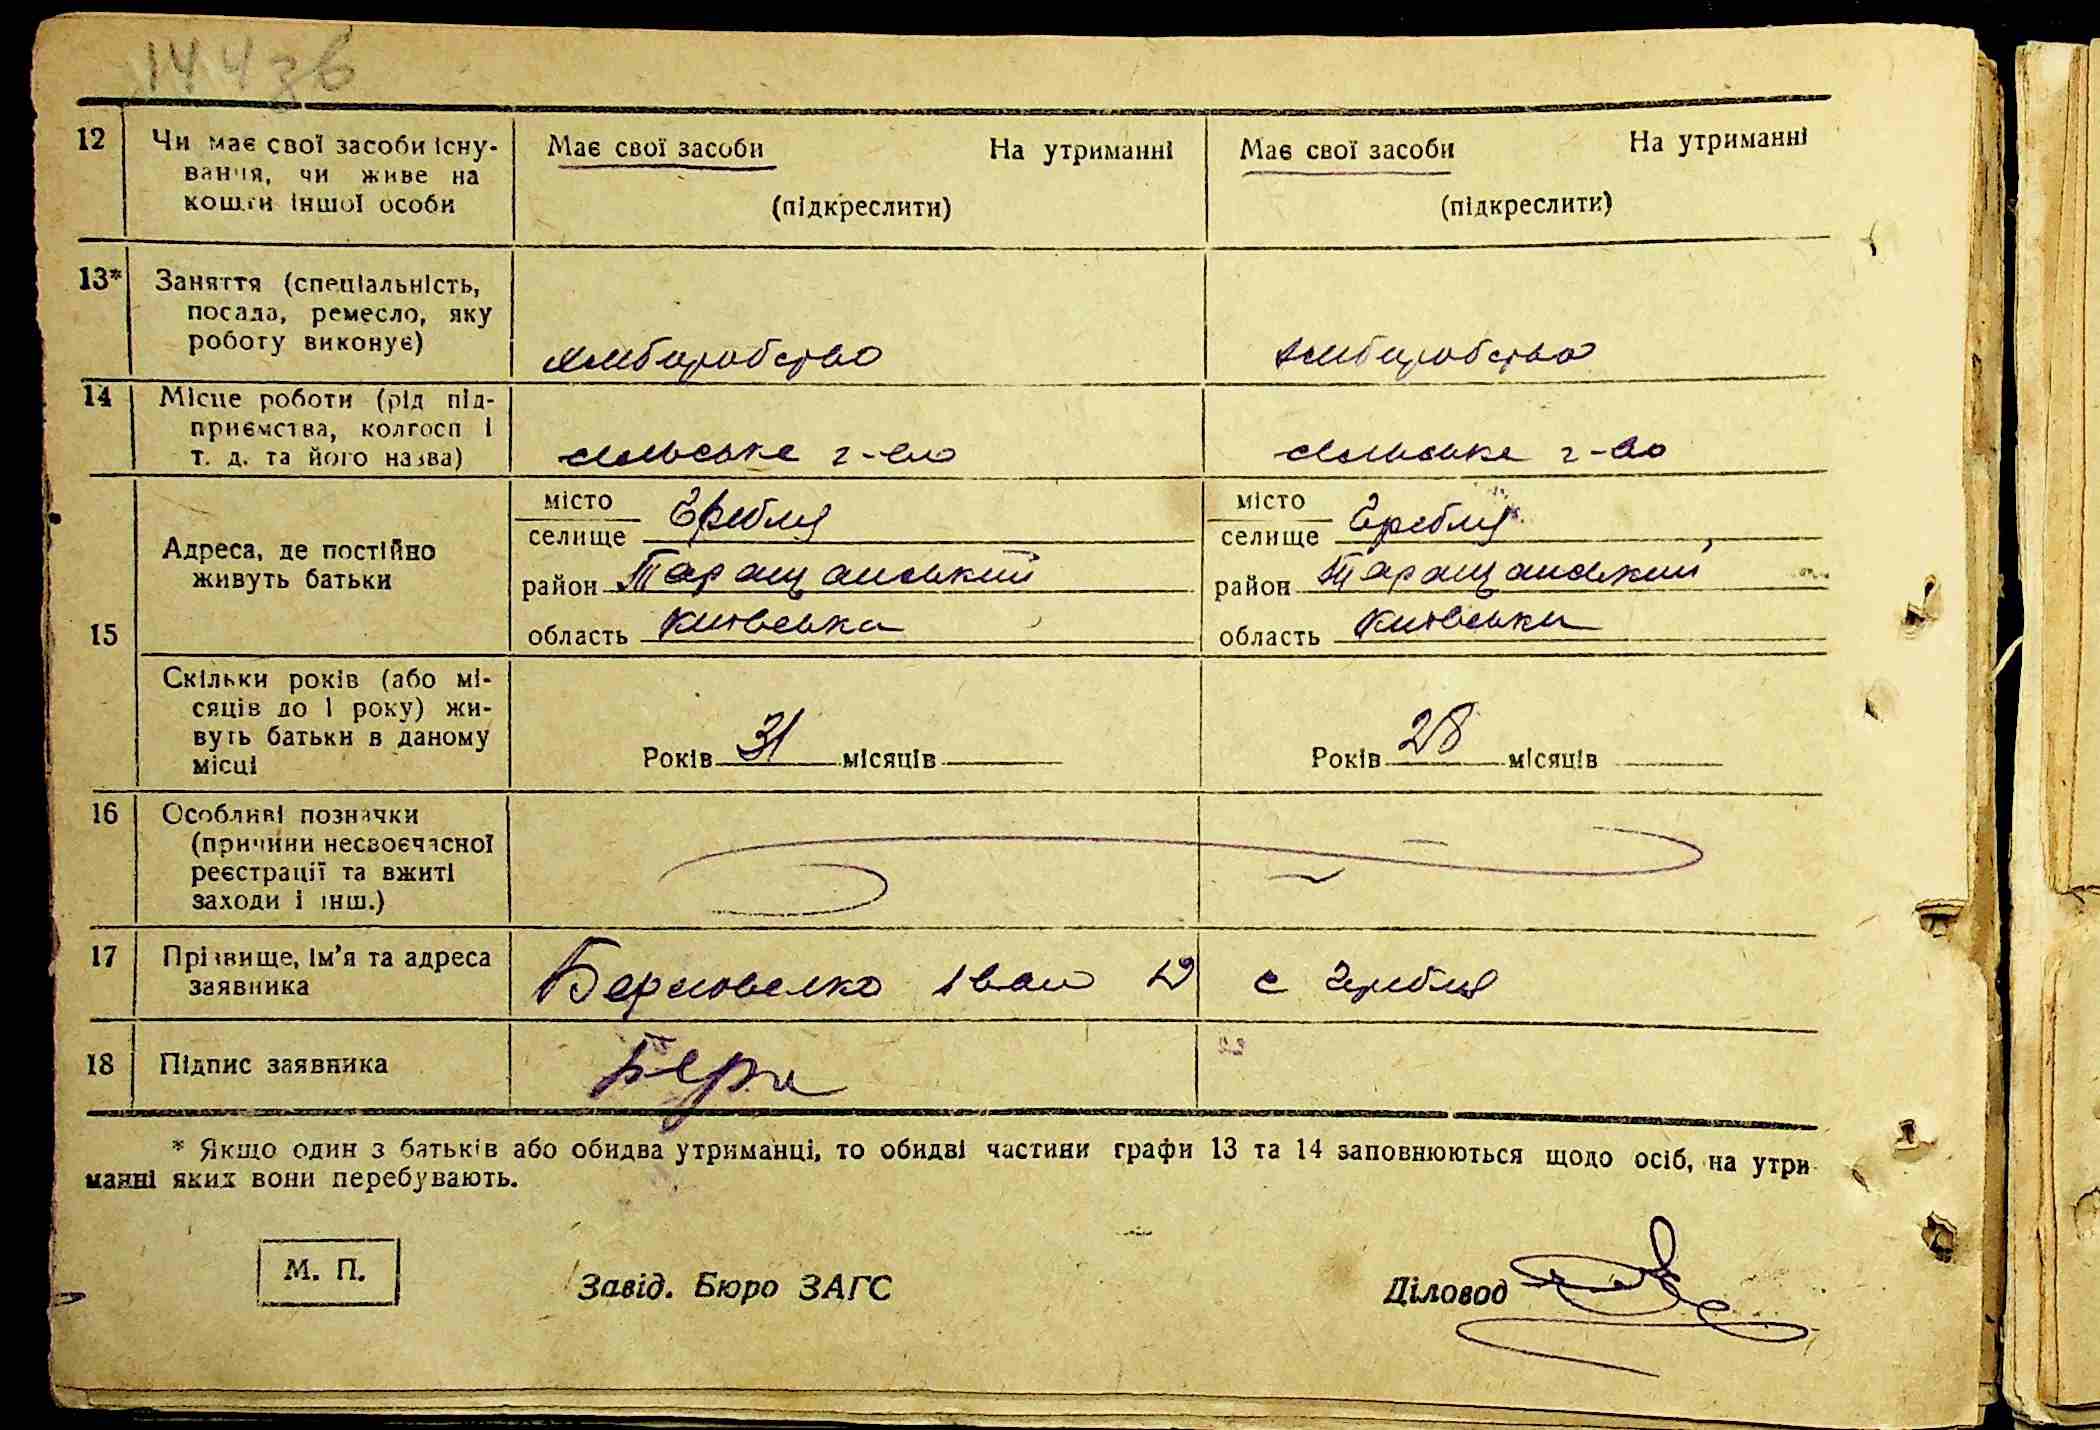 144 зв
12 Чи має свої засоби існу-
вання, чи живе на
кошти іншої особи
Має свої засоби На утриманні
(підкреслити)
Має свої засоби На утриманні
(підкреслити)
13* Заняття (спеціальність,
посада, ремесло, яку
роботу виконує)
хліборобство
хліборобство
14 Місце роботи (рід під-
приємства, колгосп і
т. д. та його назва)
сільське г-во
сільське г-во
15 Адреса, де постійно
живуть батьки
місто
селище Гребля
район Таращанський
область Київська
місто
селище Гребля
район Таращанський
область Київська
Скільки років (або мі-
сяців до 1 року) жи-
вуть батьки в даному
місці
Років 31 місяців
Років 28 місяців
16 Особливі позначки
(причини несвоєчасної
реєстрації та вжиті
заходи і інш.)
17 Прізвище, ім'я та адреса
заявника
Іван с Гребля
18 Підпис заявника
* Якщо один з батьків або обидва утриманці, то обидві частини графи 13 та 14 заповнюються щодо осіб, на утри
манні яких вони перебувають.
М. П.
Завід. Бюро ЗАГС
Діловод